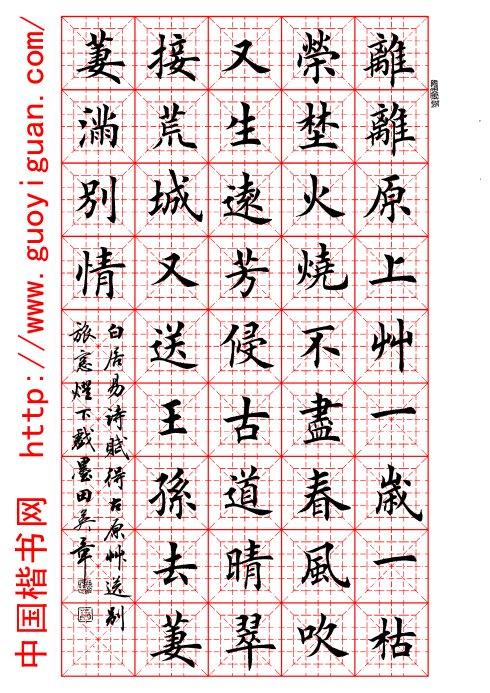 離離原上艸一歲一枯
榮埜火燒不盡春風吹
又生遠芳侵古道晴翠
接荒城又送王孫去萋
萋滿別情
白居易诗賦得古原艸送别
旅窓燈下戲墨田英章
中国楷书网 http://www.guoyiguan.com/